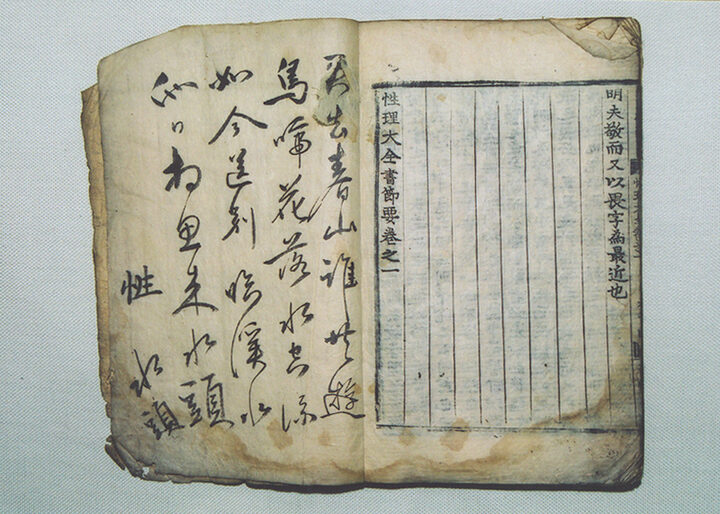 明夫敬而又以畏字為最近也
性理大全書節要卷之一
君去春山誰共遊
鳥啼花落水空流
如今送別臨溪水
他日相思來水頭
性 水頭